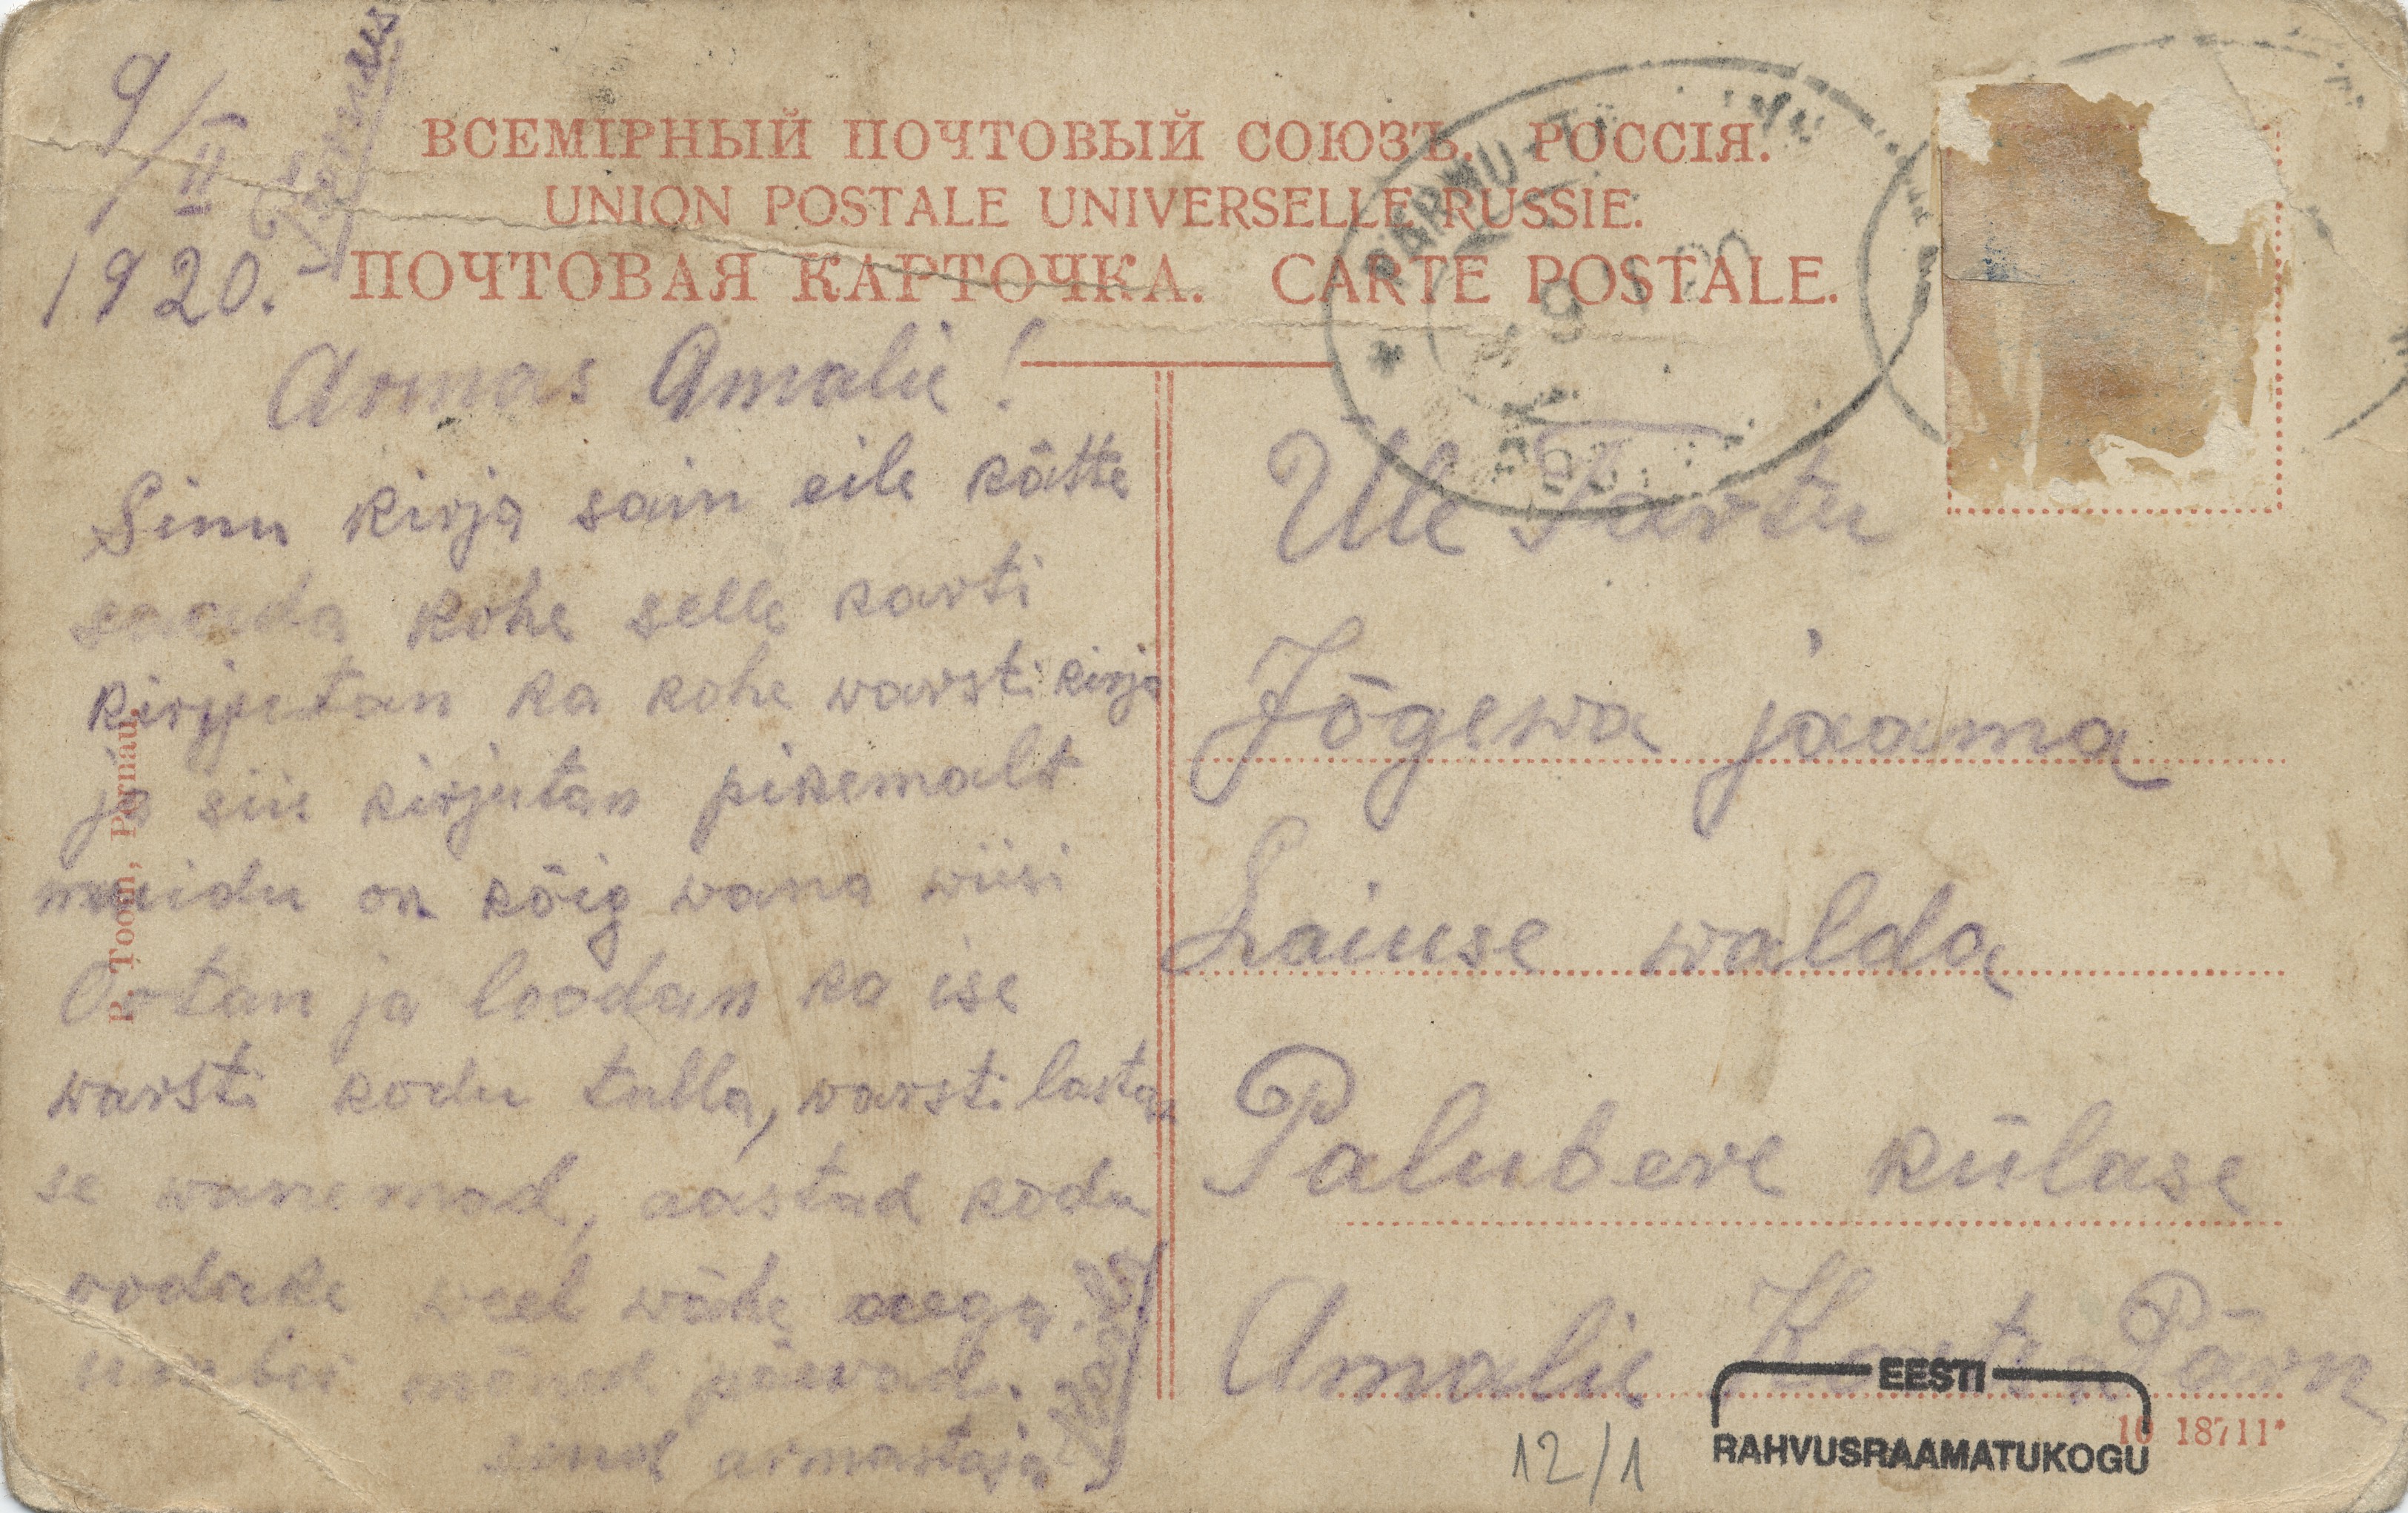 9/II
1920. Pärnus
ВСЕМІРНЫЙ ПОЧТОВЫЙ СОЮЗЪ. РОССІЯ.
UNION POSTALE UNIVERSELLE RUSSIE.
ПОЧТОВАЯ КАРТОЧКА. CARTE POSTALE.
PÄRNU
9 II 20
Armas Amalie!
Sinu kirja sain eile kätte
saada kohe selle karti
kirjutan ka kohe warsti kirja
ja siis kirjutan pikemalt
muidu on kõig wana wiisi
Ootan ja loodan ka ise
warsti kodu tulla, warsti lasta
se wanemad, aastad kodu
oodake weel wähe aega
mõned päewad.
sind armastaja
Üle Tartu
Jõgewa jaama
Laiuse walda
Palubere külase
Amalie Pärn
P. Toom, Pernau.
EESTI
RAHVUSRAAMATUKOGU
10 18711*
12/1